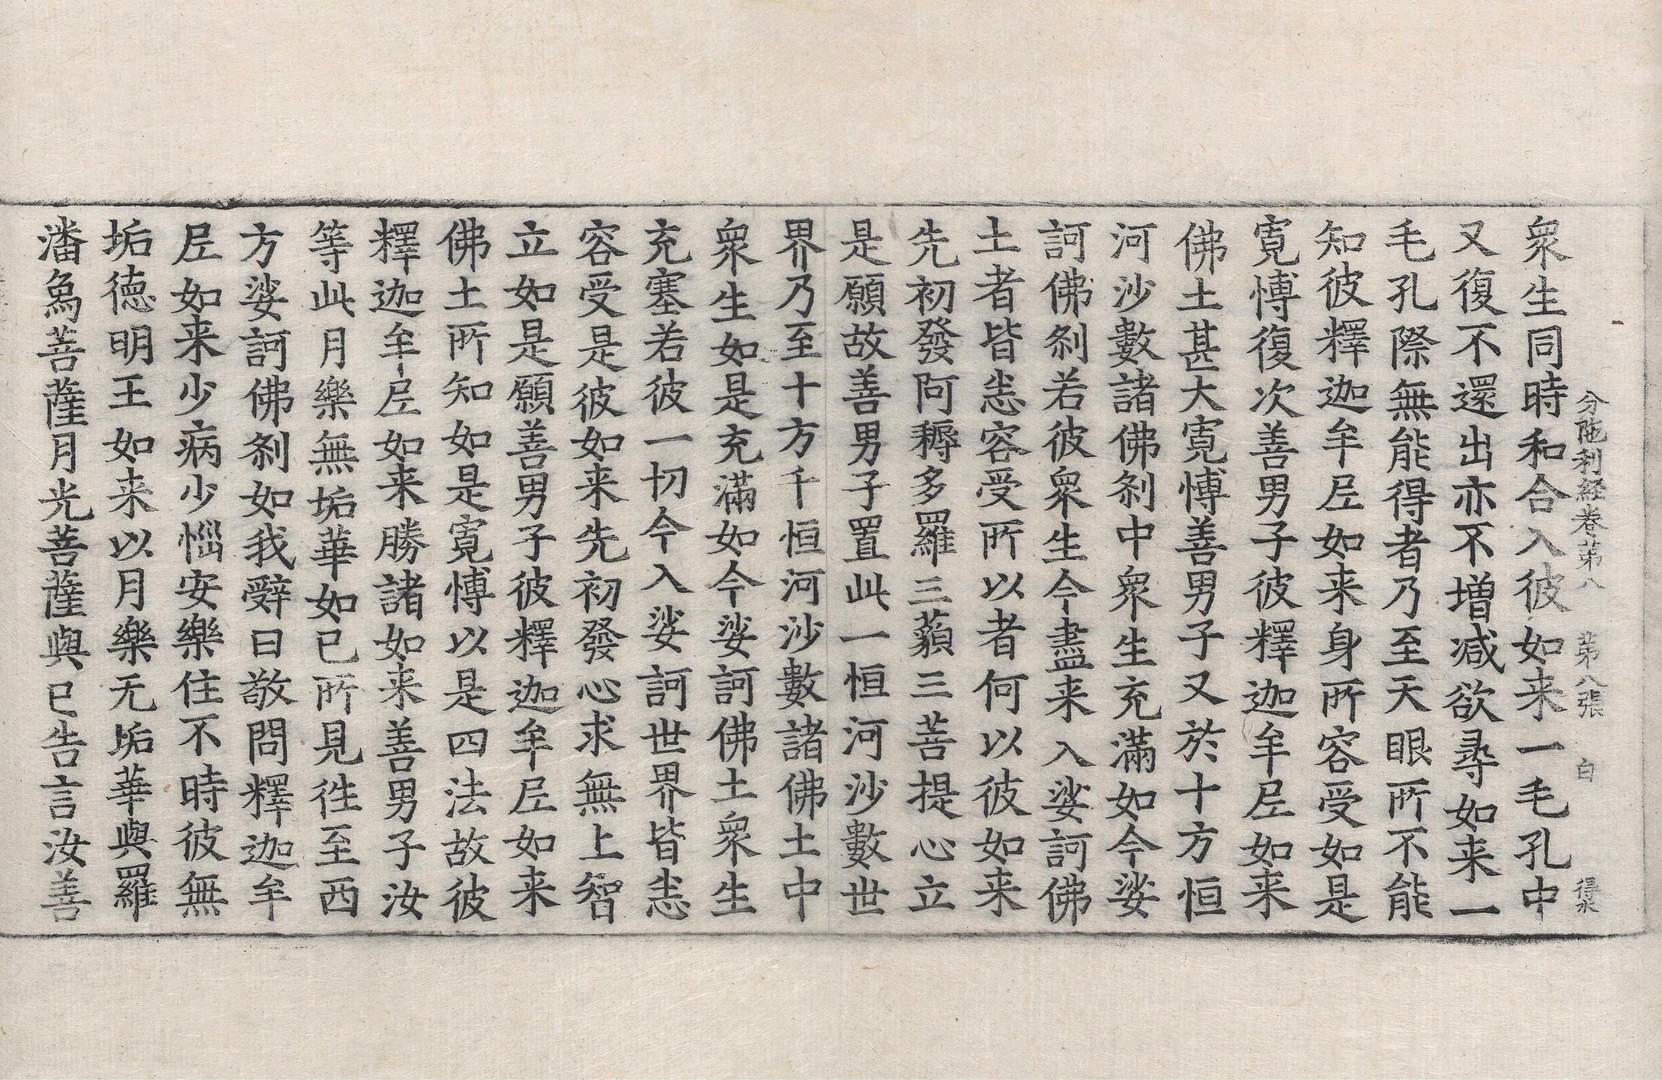 分陁利経卷第八 第八張 白 得水
衆生同時和合入彼如来一毛孔中
又復不還出亦不增减欲尋如来一
毛孔際無能得者乃至天眼所不能
知彼釋迦牟尼如来身所容受如是
寬博復次善男子彼釋迦牟尼如来
佛土甚大寬博善男子又於十方恒
河沙數諸佛刹中衆生充滿如今娑
訶佛刹若彼衆生今盡来入娑訶佛
土者皆悉容受所以者何以彼如来
先初發阿耨多羅三藐三菩提心立
是願故善男子置此一恒河沙數世
界乃至十方千恒河沙數諸佛土中
衆生如是充滿如今娑訶佛土衆生
充塞若彼一切今入娑訶世界皆悉
容受是彼如来先初發心求無上智
立如是願善男子彼釋迦牟尼如来
佛土所知如是寬博以是四法故彼
釋迦牟尼如来勝諸如来善男子汝
等此月樂無垢華如已所見徃至西
方娑訶佛刹如我辭曰敬問釋迦牟
尼如来少病少惱安樂住不時彼無
垢德明王如来以月樂无垢華與羅
潘㷱菩薩月光菩薩與已告言汝善